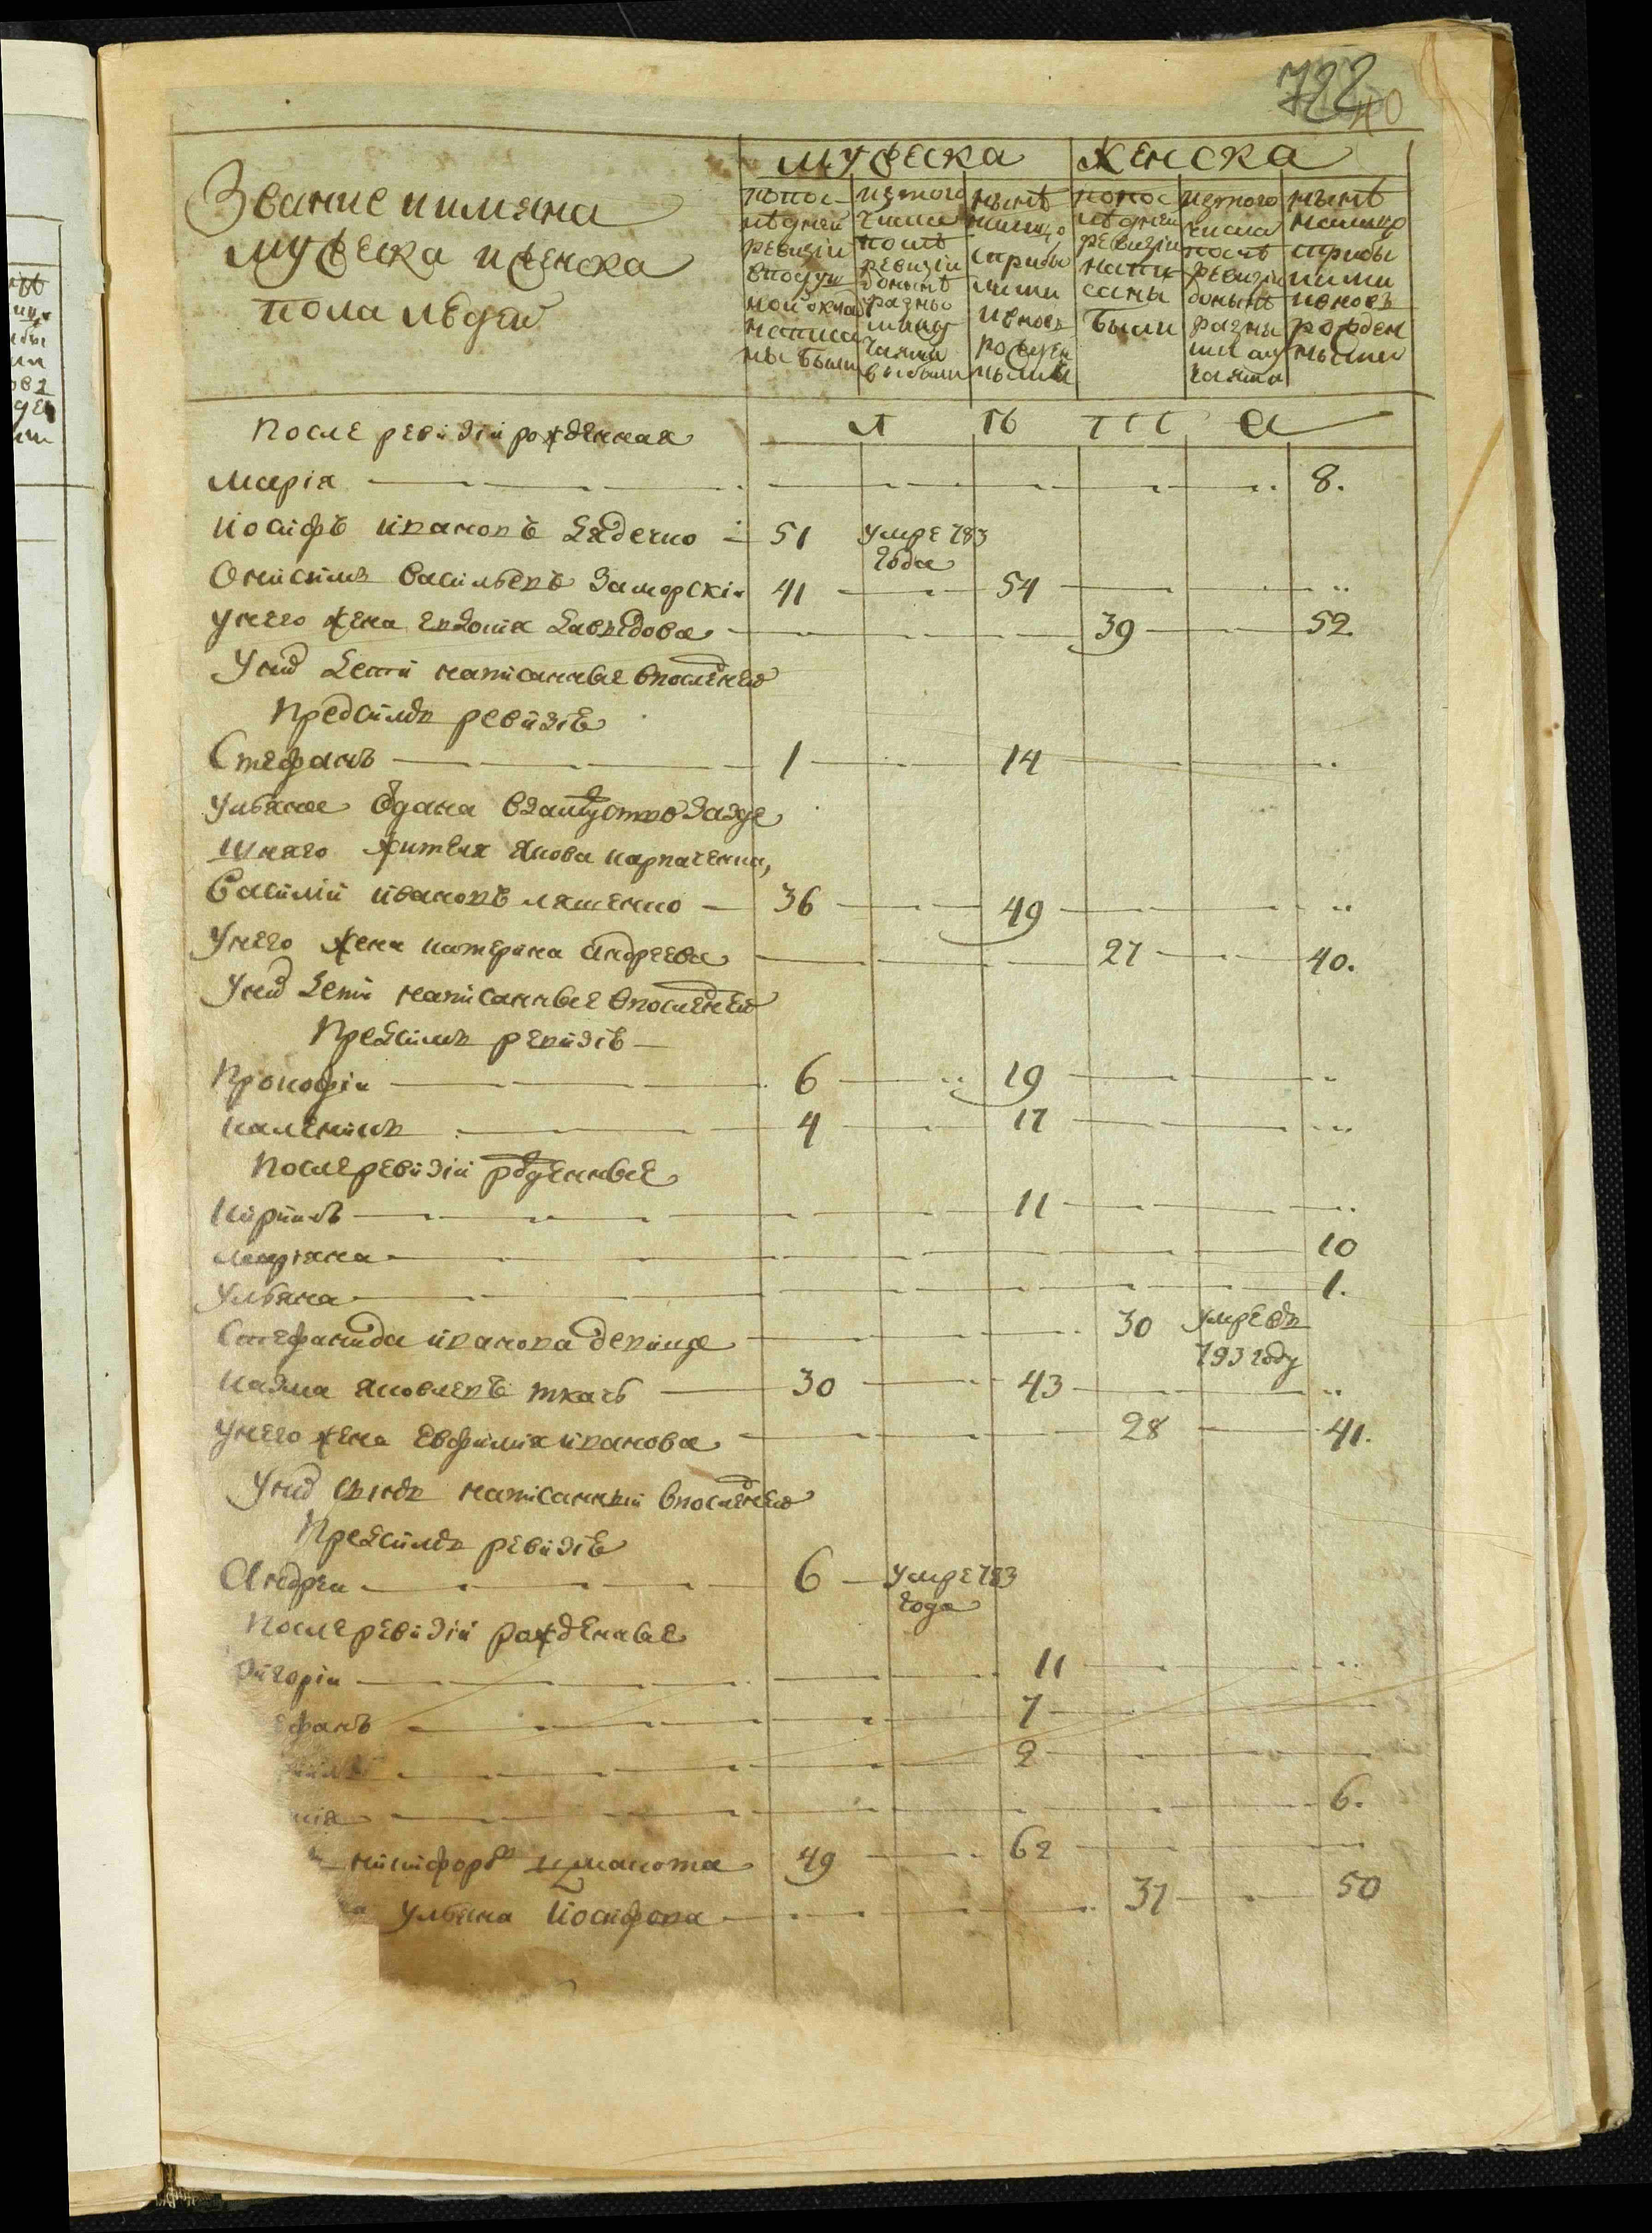 722
40
Звание и имяна
мужеска и женска
пола людей
мужеска
женска
по пос-
лѣдней
ревизіи
в подуш
ной оклад
написа
ны были
из того
числа
послѣ
ревизіи
донынѣ
разны
ми слу
чаями
выбыли
нынѣ
налицо
с прибы
лими
и вновь
рожден
ными
по пос
лѣдней
ревизіи
напи
саны
были
из того
числа
послѣ
ревизіи
донынѣ
разны
ми слу
чаями
нынѣ
налицо
с прибы
лими
и вновь
рожден
ными
После ревизіи рожденная л ѣ т а
Марія 8.
Иосифъ Ивановъ Дяденко 51 умре 783 года
Онисимъ Васильевъ Заморскій 41 54
У него жена Евдокія Давидова 39 52.
У них дети написанные в последней
пред симъ ревизіе
Стефанъ 1 14
Ульяна одана в замуство за зде
шняго жителя Якова Карпаченка,
Василій Ивановъ Ляшенко 36 49
У него жена Катерина Андреева 27 40.
У них дети написанные в последней
пред симъ ревизіе
Прокофій 6 19
Каленикъ 4 17
После ревизіи рожденные
Кирилъ 11
Маріяна 10
Ульяна 1.
Стефанида Иванова девица 30 умре въ 793 году
Казма Яковлевъ Ткачъ 30 43
У него жена Евфимія Иванова 28 41.
У них сынъ написанный в последней
пред симъ ревизіе
Андрей 6 умре 783 года
После ревизіи рожденные
игорій 11
ефанъ 7
2
нія 6.
Никифоръ 49 62
на Ульяна Иосифова 37 50